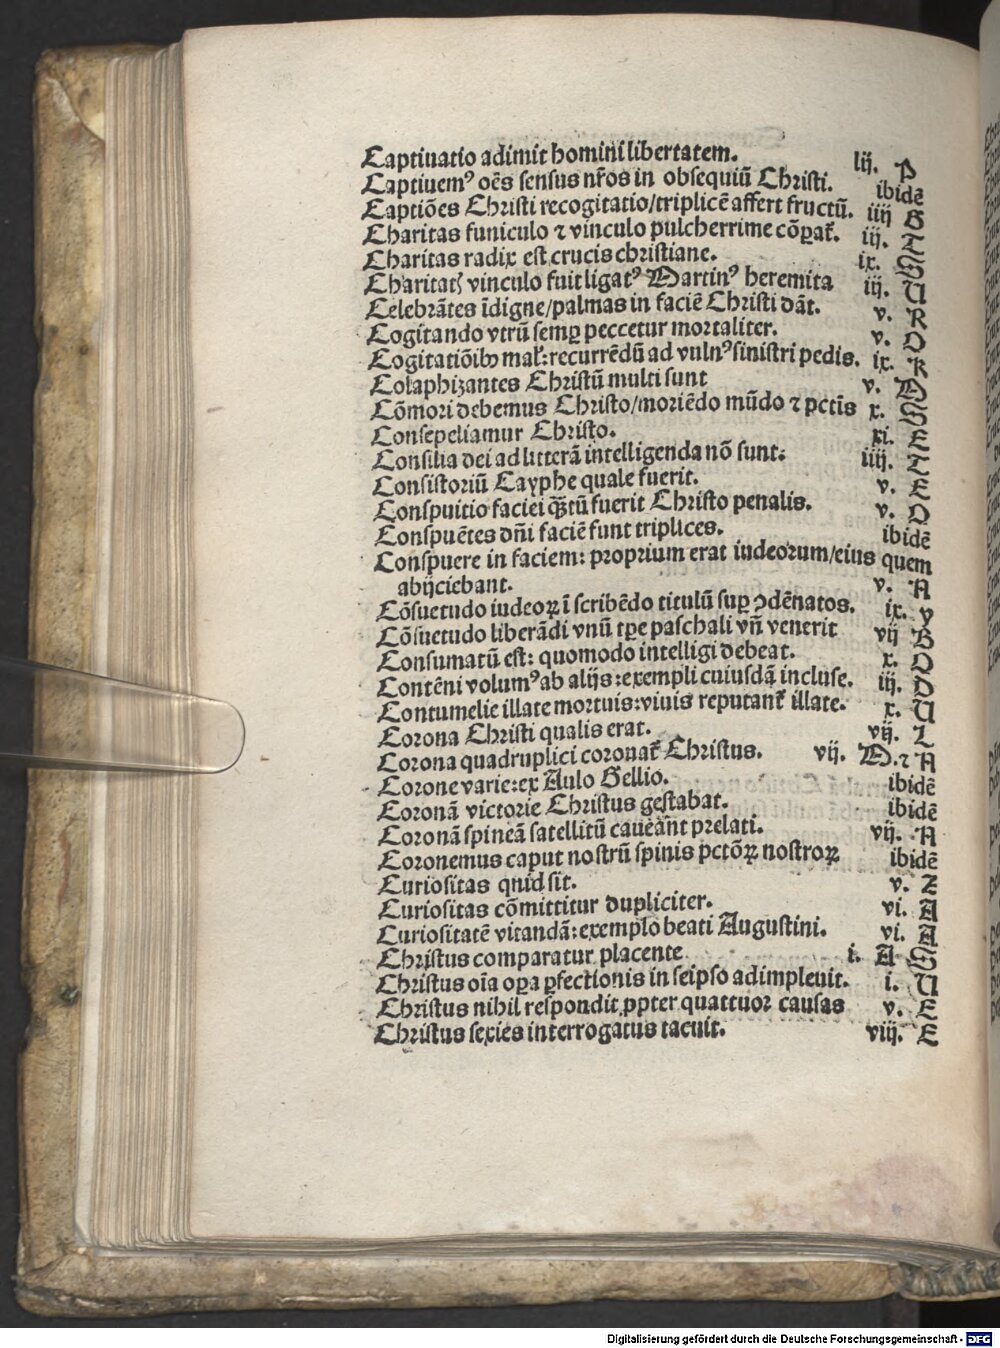 Captiuatio adimit homini libertatem. lij. P
Captiuemꝰ oēs sensus nr̄os in obsequiū Christi. ibidē
Captiōes Christi recogitatio/triplicē affert fructū. iiij G
Charitas funiculo ⁊ vinculo pulcherrime cōꝑat᷑. iij. T
Charitas radix est crucis christiane. ix. S
Charitatꝭ vinculo fuit ligatꝰ Martinꝰ heremita iij. U
Celebrātes īdigne/palmas in faciē Christi dāt. v. R
Cogitando vtrū semꝑ peccetur mortaliter. v. O
Cogitatiōibꝰ mal᷑: recurrēdū ad vulnꝰ sinistri pedis. ix. R
Colaphizantes Christū multi sunt v. M
Cōmori debemus Christo/moriēdo mūdo ⁊ pctīs x. S
Consepeliamur Christo. xi. E
Consilia dei ad litterā intelligenda nō sunt. iiij. C
Consistoriū Cayphe quale fuerit. v. E
Conspuitio faciei quātū fuerit Christo penalis. v. O
Conspuētes dn̄i faciē sunt triplices. ibidē
Conspuere in faciem: proprium erat iudeorum/eius quem
abijciebant. v. A
Cōsuetudo iudeoꝝ ī scribēdo titulū suꝑ ↄdēnatos. ix. y
Cōsuetudo liberādi vnū tꝑe paschali vn̄ venerit vij B
Consumatū est: quomodo intelligi debeat. x. O
Contēni volumꝰ ab alijs: exempli cuiusdā incluse. iij. O
Contumelie illate mortuis: viuis reputant᷑ illate. x. U
Corona Christi qualis erat. vij. L
Corona quadruplici coronat᷑ Christus. vij. M. ⁊ A
Corone varie: ex Aulo Gellio. ibidē
Coronā victorie Christus gestabat. ibidē
Coronā spineā satellitū caueānt prelati. vij. A
Coronemus caput nostrū spinis pctōꝝ nostroꝝ ibidē
Curiositas quid sit. v. Z
Curiositas cōmittitur dupliciter. vi. A
Curiositatē vitandā: exemplo beati Augustini. vi. A
Christus comparatur placente i. A S
Christus oīa oꝑa ꝑfectionis in seipso adimpleuit. i. U
Christus nihil respondit ꝓpter quattuor causas v. E
Christus sexies interrogatus tacuit. viij. E
Digitalisierung gefördert durch die Deutsche Forschungsgemeinschaft - DFG